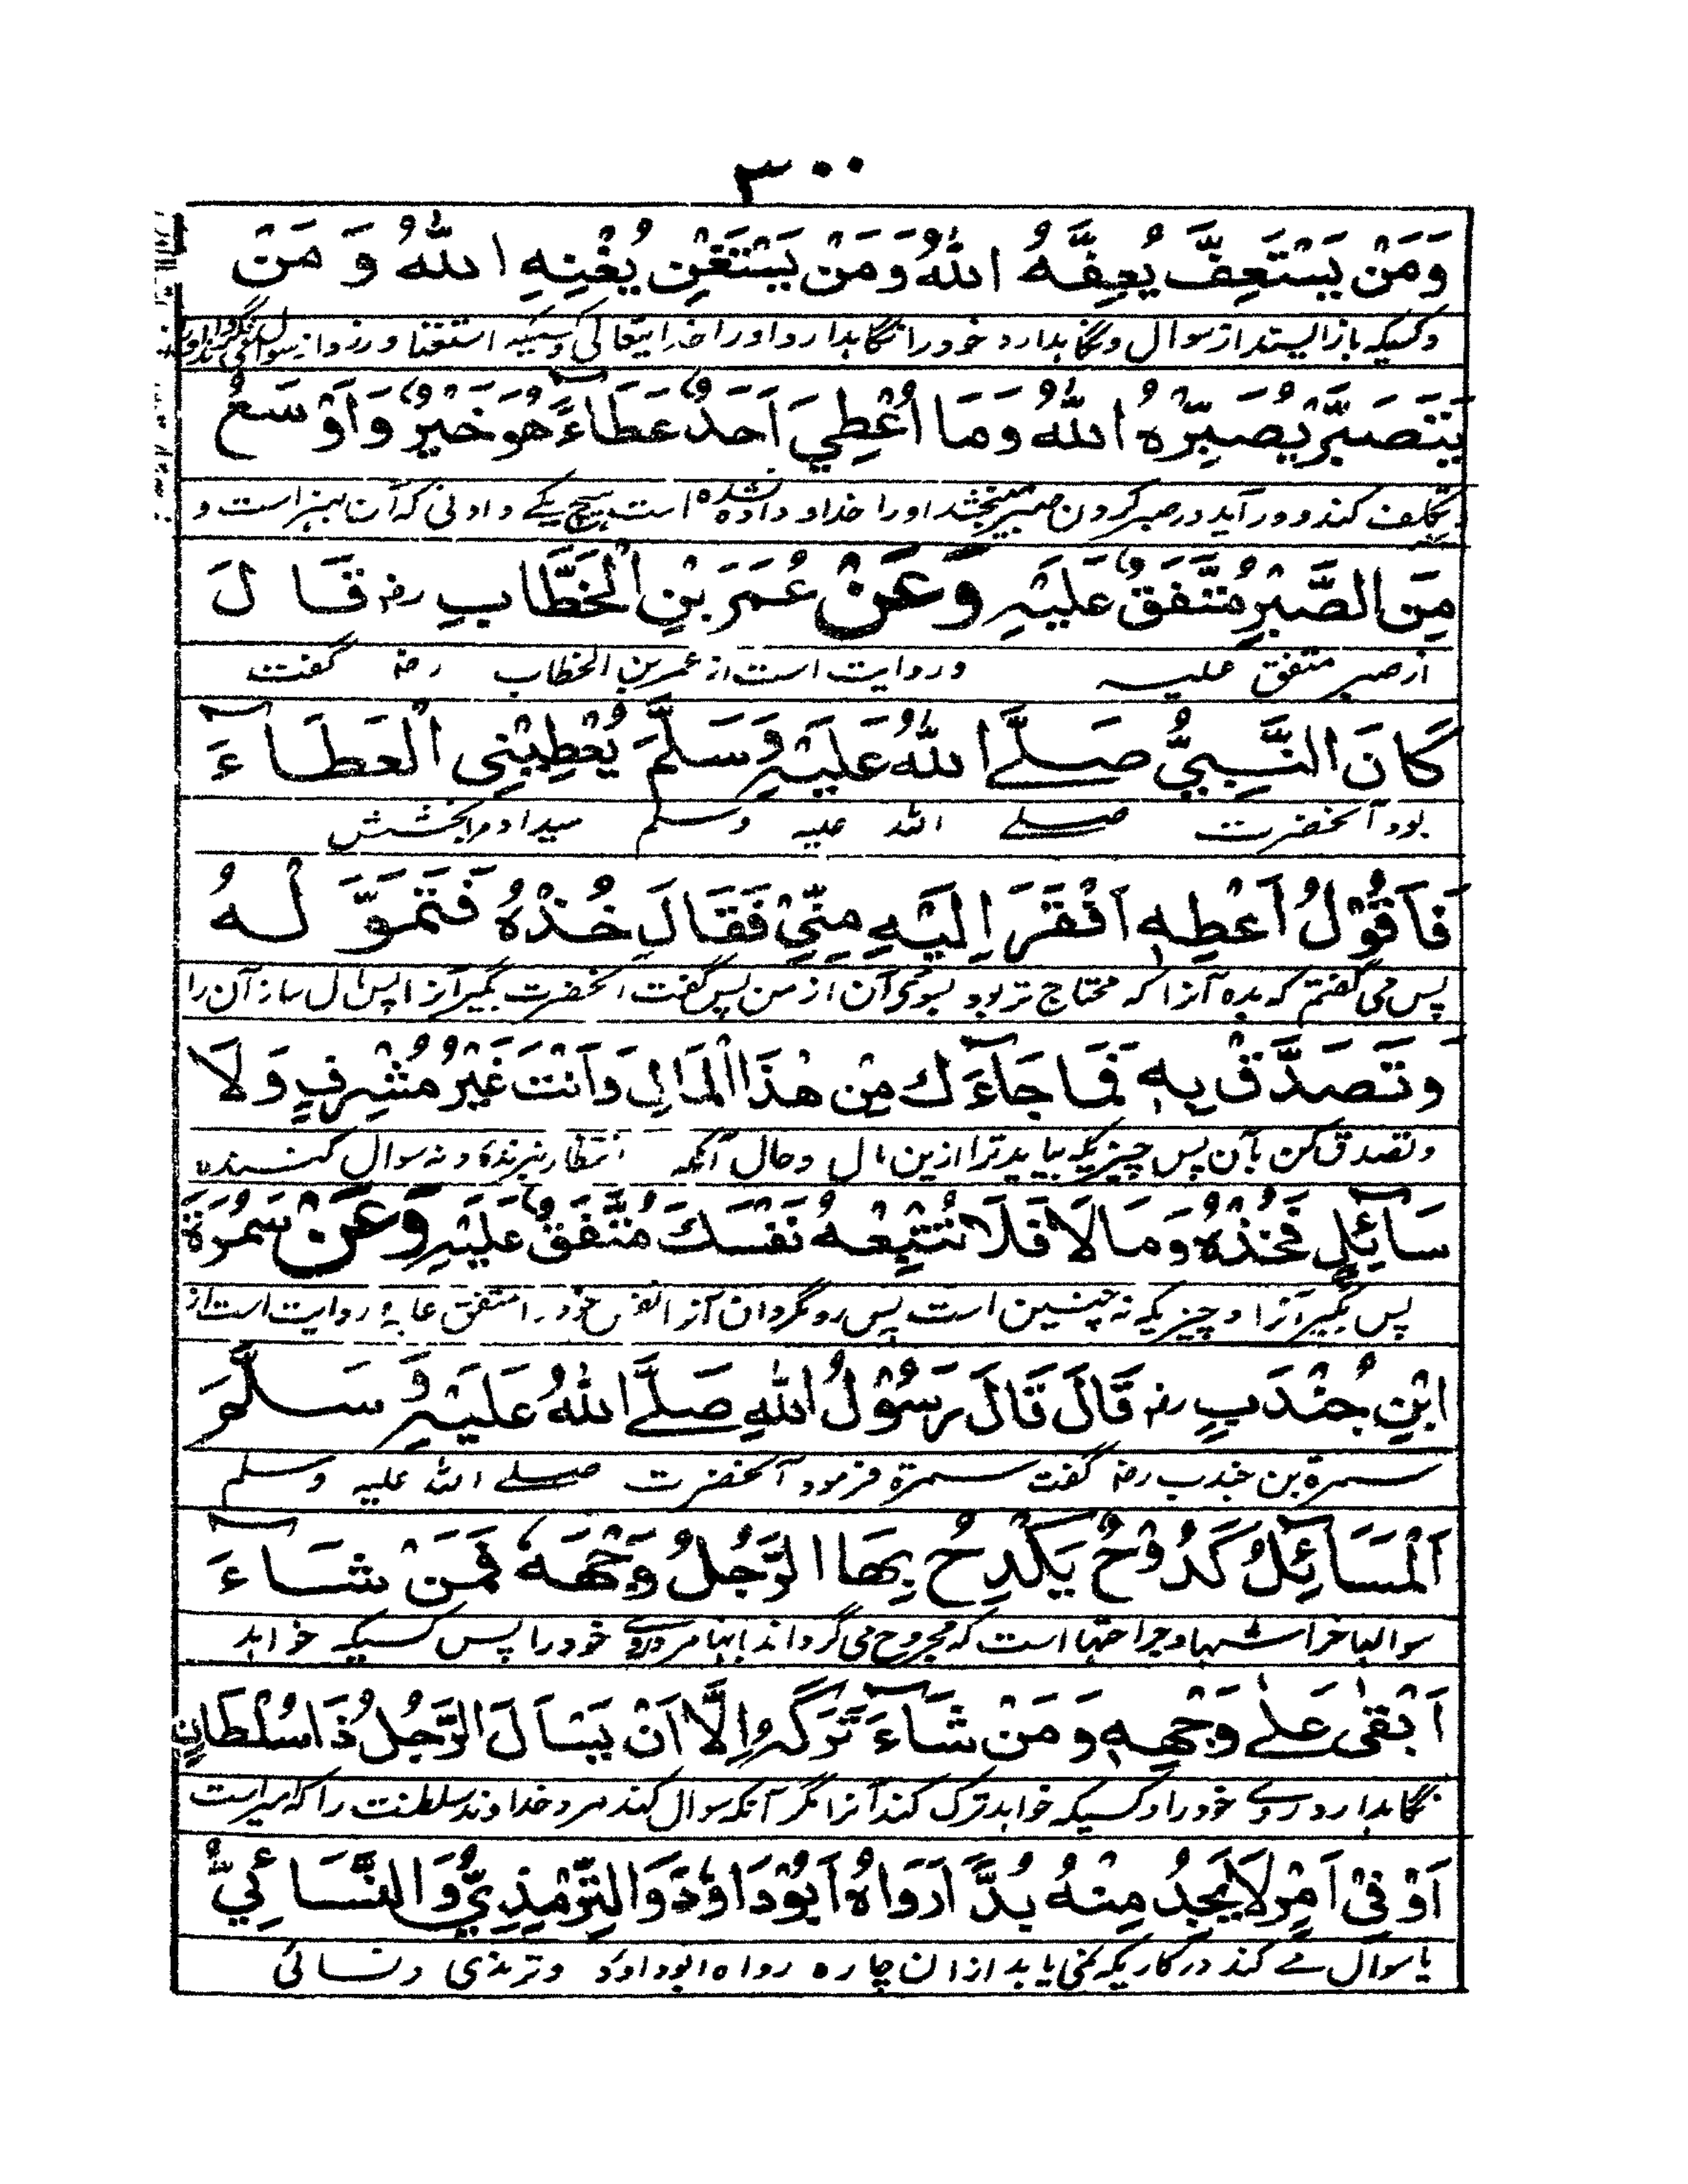 ٣٠٠
وَمَنْ يَسْتَعِفَّ يُعِفَّهُ اللّٰهُ وَمَنْ يَسْتَغْنِ يُغْنِهِ اللّٰهُ وَ مَنْ
وکسیکہ باز ایستد از سوال ونگاہدارد خود را نگاہدارد اورا خدایتعالی وکسیکہ استغنا ورزد از سوال
يَتَصَبَّرْ يُصَبِّرْهُ اللّٰهُ وَمَا اُعْطِيَ اَحَدٌ عَطَآءً هُوَ خَيْرٌ وَاَوْسَعُ
بتکلف کند و در آید در صبر کردن صبر بخشد اورا خدا و دادہ نشدہ است ہیچ یکے دادنی کہ آن بہتر است و
مِنَ الصَّبْرِ مُتَّفَقٌ عَلَيْهِ وَعَنْ عُمَرَ بْنِ الْخَطَّابِ رضہ قَالَ
از صبر متفق علیہ و روایت است از عمر بن الخطاب رضہ گفت
كَانَ النَّبِيُّ صَلَّے اللّٰهُ عَلَيْهِ وَسَلَّمَ يُعْطِيْنِى الْعَطَآءَ
بود آنحضرت صلے اللہ علیہ وسلم میداد مرا بخشش
فَاَقُوْلُ اَعْطِهٖ اَفْقَرَ اِلَيْهِ مِنِّيْ فَقَالَ خُذْهُ فَتَمَوَّلْهُ
پس می گفتم کہ بدہ آنرا کہ محتاج تر بود بسوی آن از من پس گفت آنحضرت بگیر آنرا پس مال ساز آن را
وَتَصَدَّقْ بِهٖ فَمَا جَآءَكَ مِنْ هٰذَا الْمَالِ وَاَنْتَ غَيْرُ مُشْرِفٍ وَلَا
وتصدق کن بآن پس چیزیکہ بیاید ترا ازین مال وحال آنکہ انتظار نبرندۂ ونہ سوال کنندہ
سَآئِلٍ فَخُذْهُ وَمَا لَا فَلَا تُتْبِعْهُ نَفْسَكَ مُتَّفَقٌ عَلَيْهِ وَعَنْ سَمُرَةَ
پس بگیر آنرا وچیزیکہ نہ چنین است پس رو مگردان آنرا نفس خود را متفق علیہ روایت است از
ابْنِ جُنْدَبٍ رضہ قَالَ قَالَ رَسُوْلُ اللّٰهِ صَلَّے اللّٰهُ عَلَيْهِ وَسَلَّمَ
سمرۃ بن جندب رضہ گفت سمرۃ فرمود آنحضرت صلے اللہ علیہ وسلم
اَلْمَسَآئِلُ كُدُوْحٌ يَكْدِحُ بِهَا الرَّجُلُ وَجْهَهٗ فَمَنْ شَآءَ
سوالہا خراشہا وجراحتہا است کہ مجروح می گرداند بانہا مرد روے خود را پس کسیکہ خواہد
اَبْقٰى عَلٰے وَجْهِهٖ وَمَنْ شَآءَ تَرَكَهٗ اِلَّا اَنْ يَسْاَلَ الرَّجُلُ ذَا سُلْطَانٍ
نگاہدارد روے خود را وکسیکہ خواہد ترک کند آنرا مگر آنکہ سوال کند مرد خداوند سلطنت را کہ امیر است
اَوْ فِيْ اَمْرٍ لَا يَجِدُ مِنْهُ بُدًّا رَوَاهُ اَبُوْدَاوٗدَ وَالتِّرْمِذِيُّ وَالنَّسَائِيُّ
یا سوال مے کند در کاریکہ نمی یابد ازان چارہ رواہ ابوداود وترمذی ونسائی